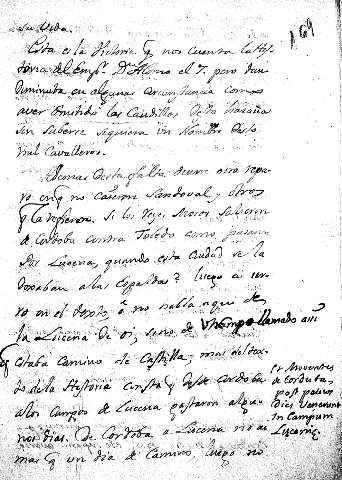 su Vida.
169
Esta es la Historia q̃ nos cuenta la His
toria del Emp.r D.n Alonso el 7. pero tan
diminuta en algunas circunstancias como
aver omitido los Caudillos desta hazaña
sin saberse siquiera un Nombre destos
mil Cavalleros.
Ademas desta falta tiene otro repa
ro en q̃ no cayeron Sandoval, y otros
q̃ la refieren. Si los Reyes Moros salieron
de Cordoba contra Toledo como pasaron
por Lucena, quando esta Ciudad se la
dexaban a las espaldas? luego ai ier
ro en el texto, o no habla aqui de
la Lucena de oi, sino de un Campo llamado assi
q̃ estaba camino de Castilla; mas del tex
to de la Historia consta q̃ desde Cordoba
a los campos de Lucena gastaron algu
nos dias. De Cordoba a Lucena no ai
mas q̃ un dia de camino, luego no
Et moventes
de Corduba,
post paucos
dies venerunt
in Campum
Lucenie